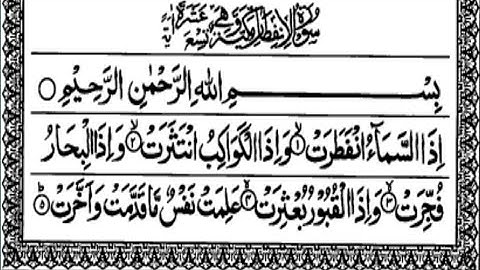 سُوْرَةُ الْاِنْفِطَارِ مَكِّيَّةٌ وَّهِيَ تِسْعَ عَشْرَةَ اٰيَةً
بِسْمِ اللهِ الرَّحْمٰنِ الرَّحِيْمِ
اِذَا السَّمَآءُ انْفَطَرَتْ ۙ۱ وَاِذَا الْكَوَاكِبُ انْتَثَرَتْ ۙ۲ وَاِذَا الْبِحَارُ
فُجِّرَتْ ۙ۳ وَاِذَا الْقُبُوْرُ بُعْثِرَتْ ۙ۴ عَلِمَتْ نَفْسٌ مَّا قَدَّمَتْ وَاَخَّرَتْ ؕ۵